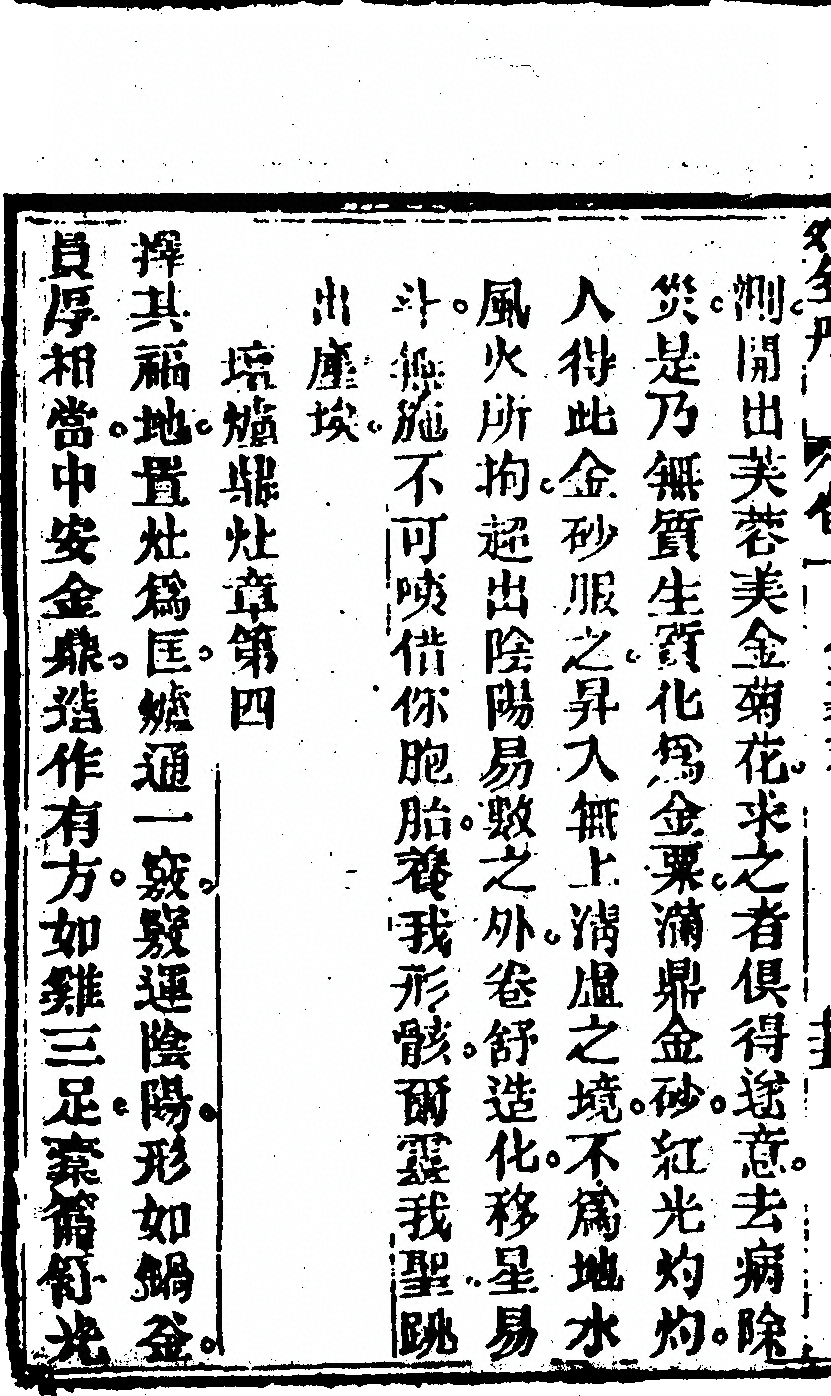 測開出芙蓉美金菊花求之者俱得遂意去病除
災是乃無質生質化為金粟滿鼎金砂紅光灼灼
人得此金砂服之昇入無上清虛之境不爲地水
風火所拘超出陰陽易數之外卷舒造化移星易
斗無施不可咦借你胞胎養我形骸爾靈我聖跳
出塵埃
壇爐鼎灶章第四
擇其福地置灶爲匡爐通一竅竅運陰陽形如鍋釜
員厚相當中安金鼎造作有方如雞三足橐籥舒光